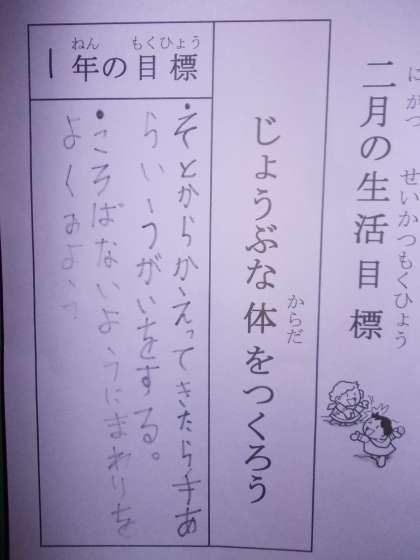 にがつ せいかつもくひょう
二月の生活目標
からだ
じょうぶな体をつくろう
ねん もくひょう
1年の目標
・そとからかえってきたら手あ
らい、うがいをする。
・ころばないようにまわりを
よくみよう